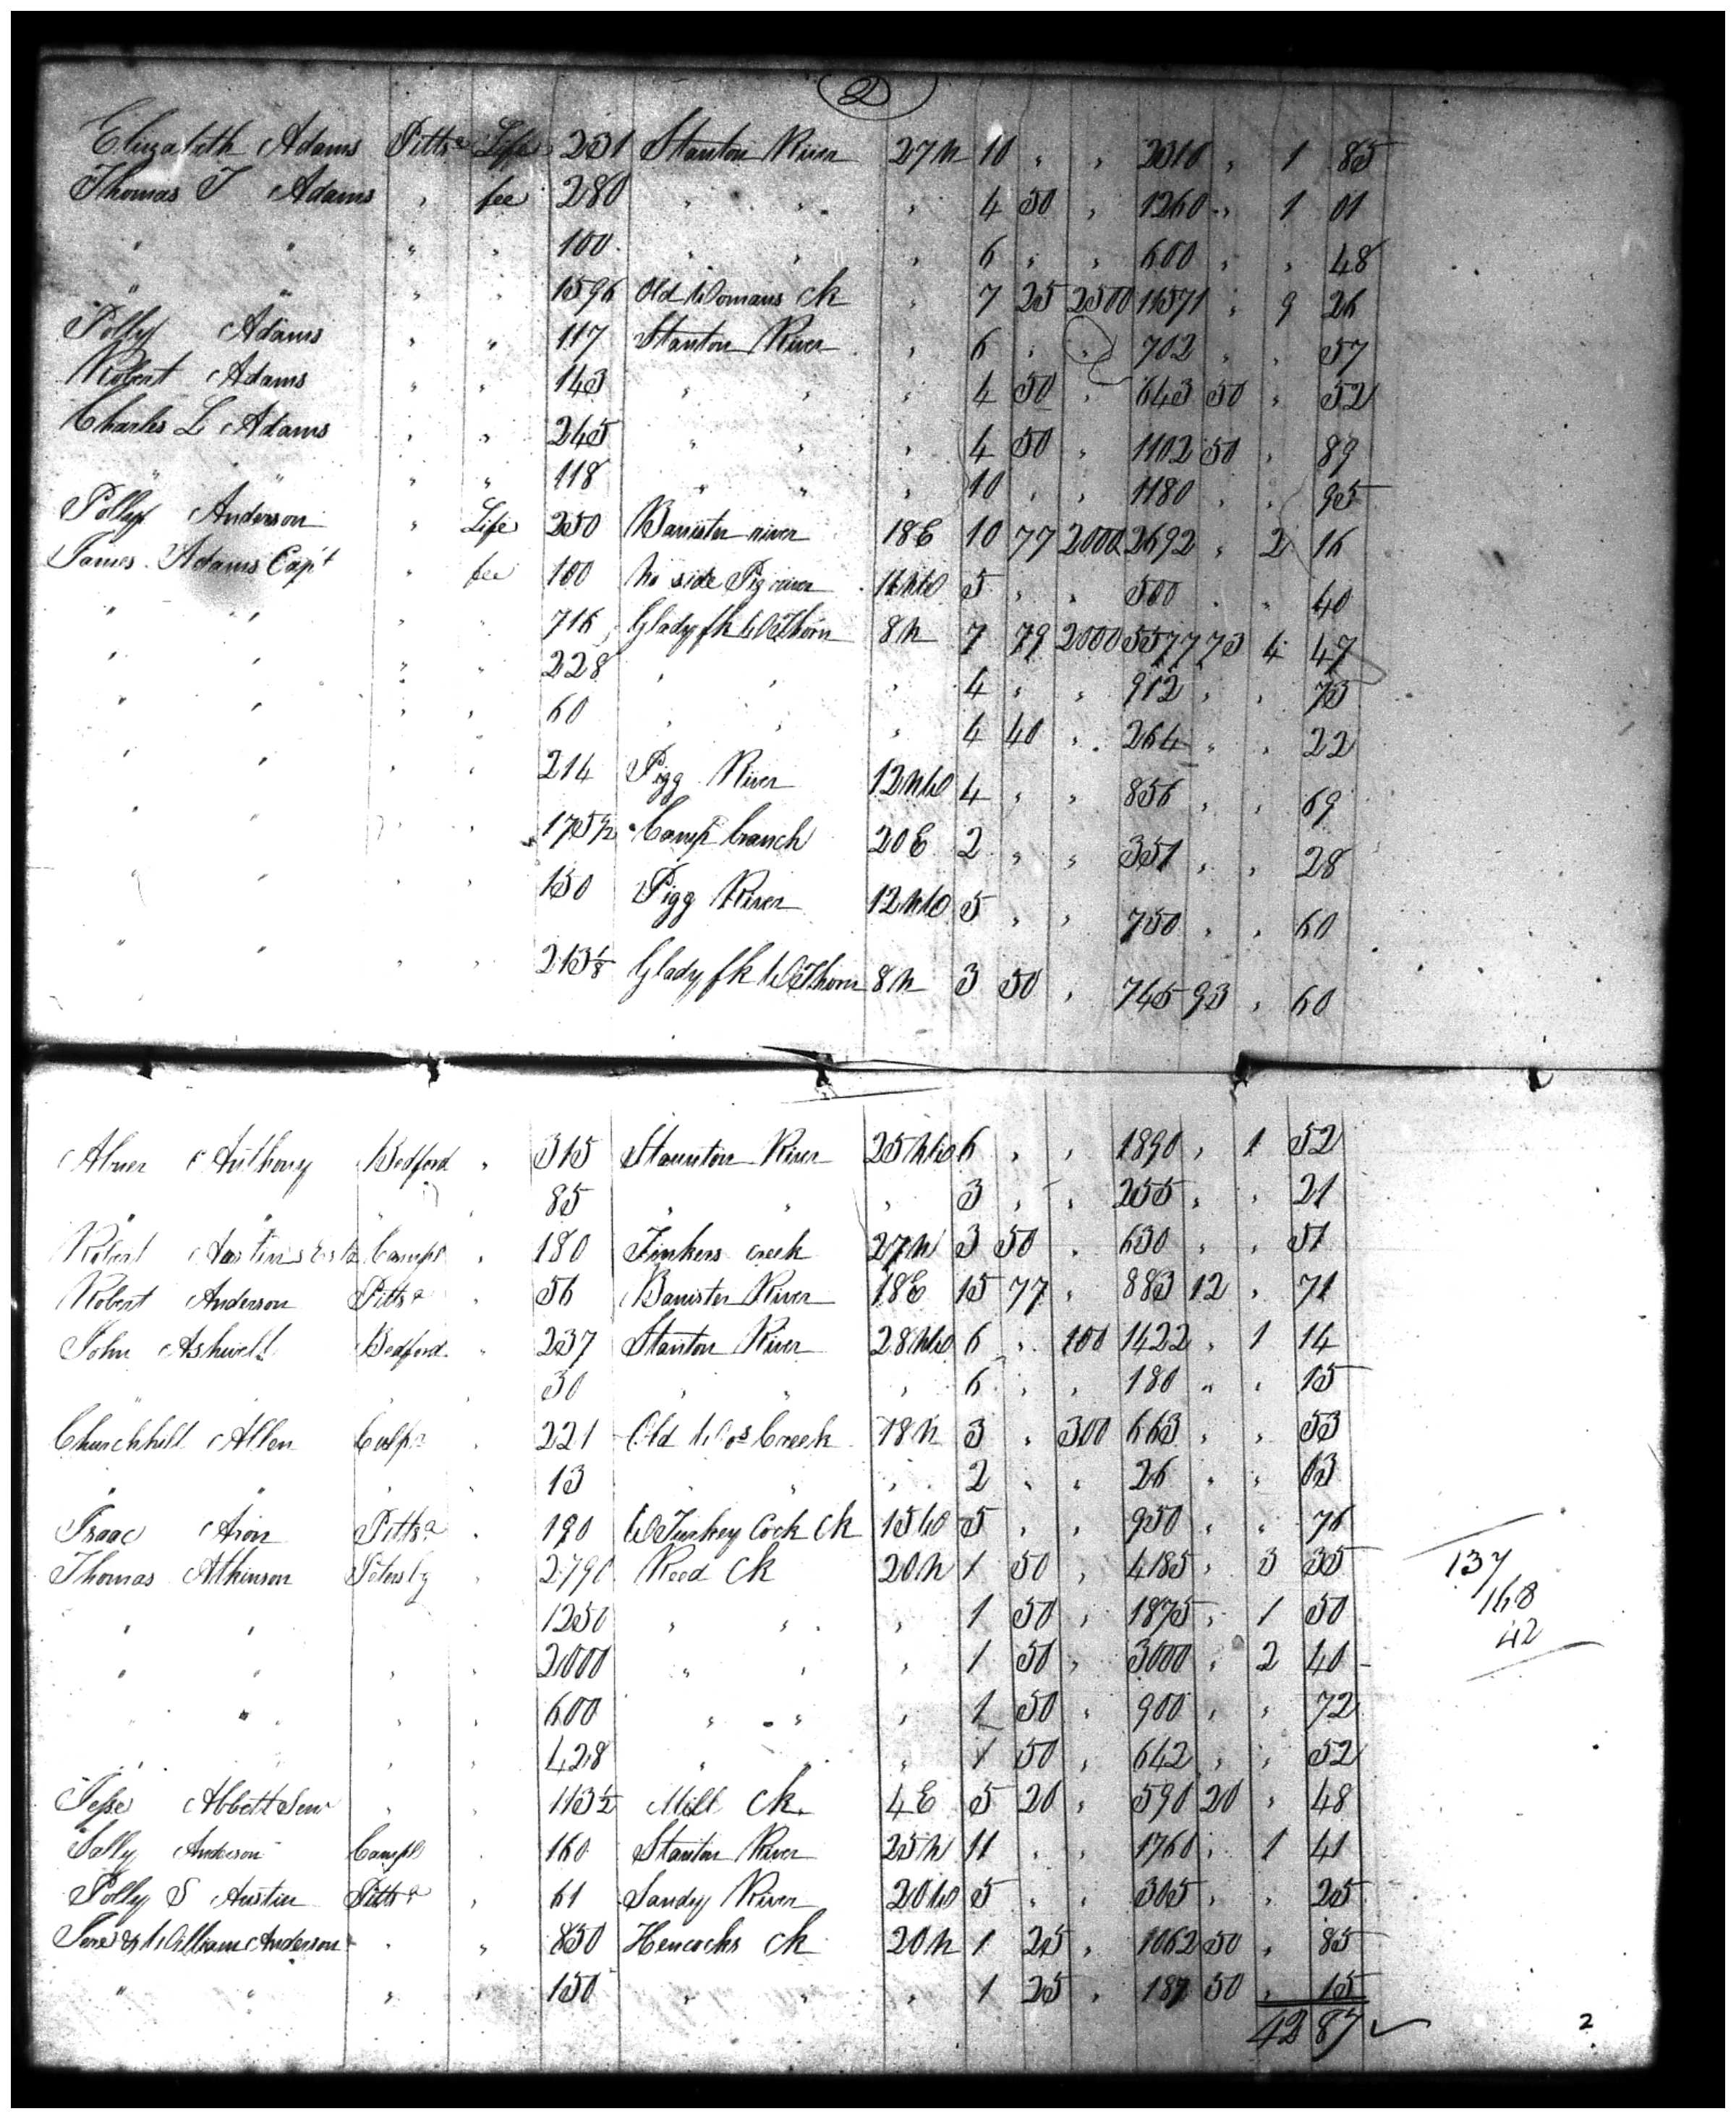 2
Elizabeth Adams Pittsa Life 231 Stanton River 27 N 10 " " 2310 " 1 85
Thomas T Adams " fee 280 " " " 4 50 " 1260 " 1 01
" " " " 100 " " " 6 " " 600 " " 48
" " " " 1596 Old Womans Ck " 7 25 2500 11571 " 9 26
Polly Adams " " 117 Stanton River " 6 " " 702 " " 57
Robert Adams " " 143 " " " 4 50 " 643 50 " 52
Charles L Adams " " 245 " " " 4 50 " 1102 50 " 89
" " " " 118 " " " 10 " " 1180 " " 95
Polly Anderson " Life 250 Banister river 18 E 10 77 2000 2692 " 2 16
James Adams Capt " fee 100 No side Pig river 16 NW 5 " " 500 " " 40
" " " " 716 Glady fk W Thorn 8 N 7 79 2000 5577 73 4 47
" " " " 228 " " " 4 " " 912 " " 73
" " " " 60 " " " 4 40 " 264 " " 22
" " " " 214 Pigg River 12 NW 4 " " 856 " " 69
" " " " 175 1/2 Camp branch 20 E 2 " " 351 " " 28
" " " " 150 Pigg River 12 NW 5 " " 750 " " 60
" " " " 213 1/8 Glady fk W Thorn 8 N 3 50 " 745 93 " 60
Abner Anthony Bedford " 315 Staunton River 25 NW 6 " " 1890 " 1 52
" " " 85 " " " 3 " " 255 " " 21
Robert Austins Esta Campl " 180 Tinkers creek 27 N 3 50 " 630 " " 51
Robert Anderson Pittsa " 56 Banister River 18 E 15 77 " 883 12 " 71
John Ashwell Bedford " 237 Stanton River 28 NW 6 " 100 1422 " 1 14
" 30 " " " 6 " " 180 " " 15
Churchhill Allen Culpr " 221 Old Wos Creek 18 N 3 " 300 663 " " 53
" " " " 13 " " " 2 " " 26 " " 03
Isaac Aron Pittsa " 190 W Turkey Cock Ck 15 W 5 " " 950 " " 76
Thomas Atkinson Petersbg " 2790 Reed Ck 20 N 1 50 " 4185 " 3 35
" " 1250 " " " 1 50 " 1875 " 1 50
" " " " 2000 " " " 1 50 " 3000 " 2 40
" " " " 600 " " " 1 50 " 900 " " 72
" " " " 428 " " " 1 50 " 642 " " 52
Jesse Abbott Senr " " 113 1/2 Mill Ck. 4 E 5 20 " 590 20 " 48
Sally Anderson Campl " 160 Stanton River 25 N 11 " " 1760 " 1 41
Polly S Austin Pittsa " 61 Sandy River 20 W 5 " " 305 " " 25
William Anderson " " 850 Hencocks Ck 20 N 1 25 " 1062 50 " 85
" " " " 150 " " " 1 25 " 187 50 " 15
42 87
137
168
42
2